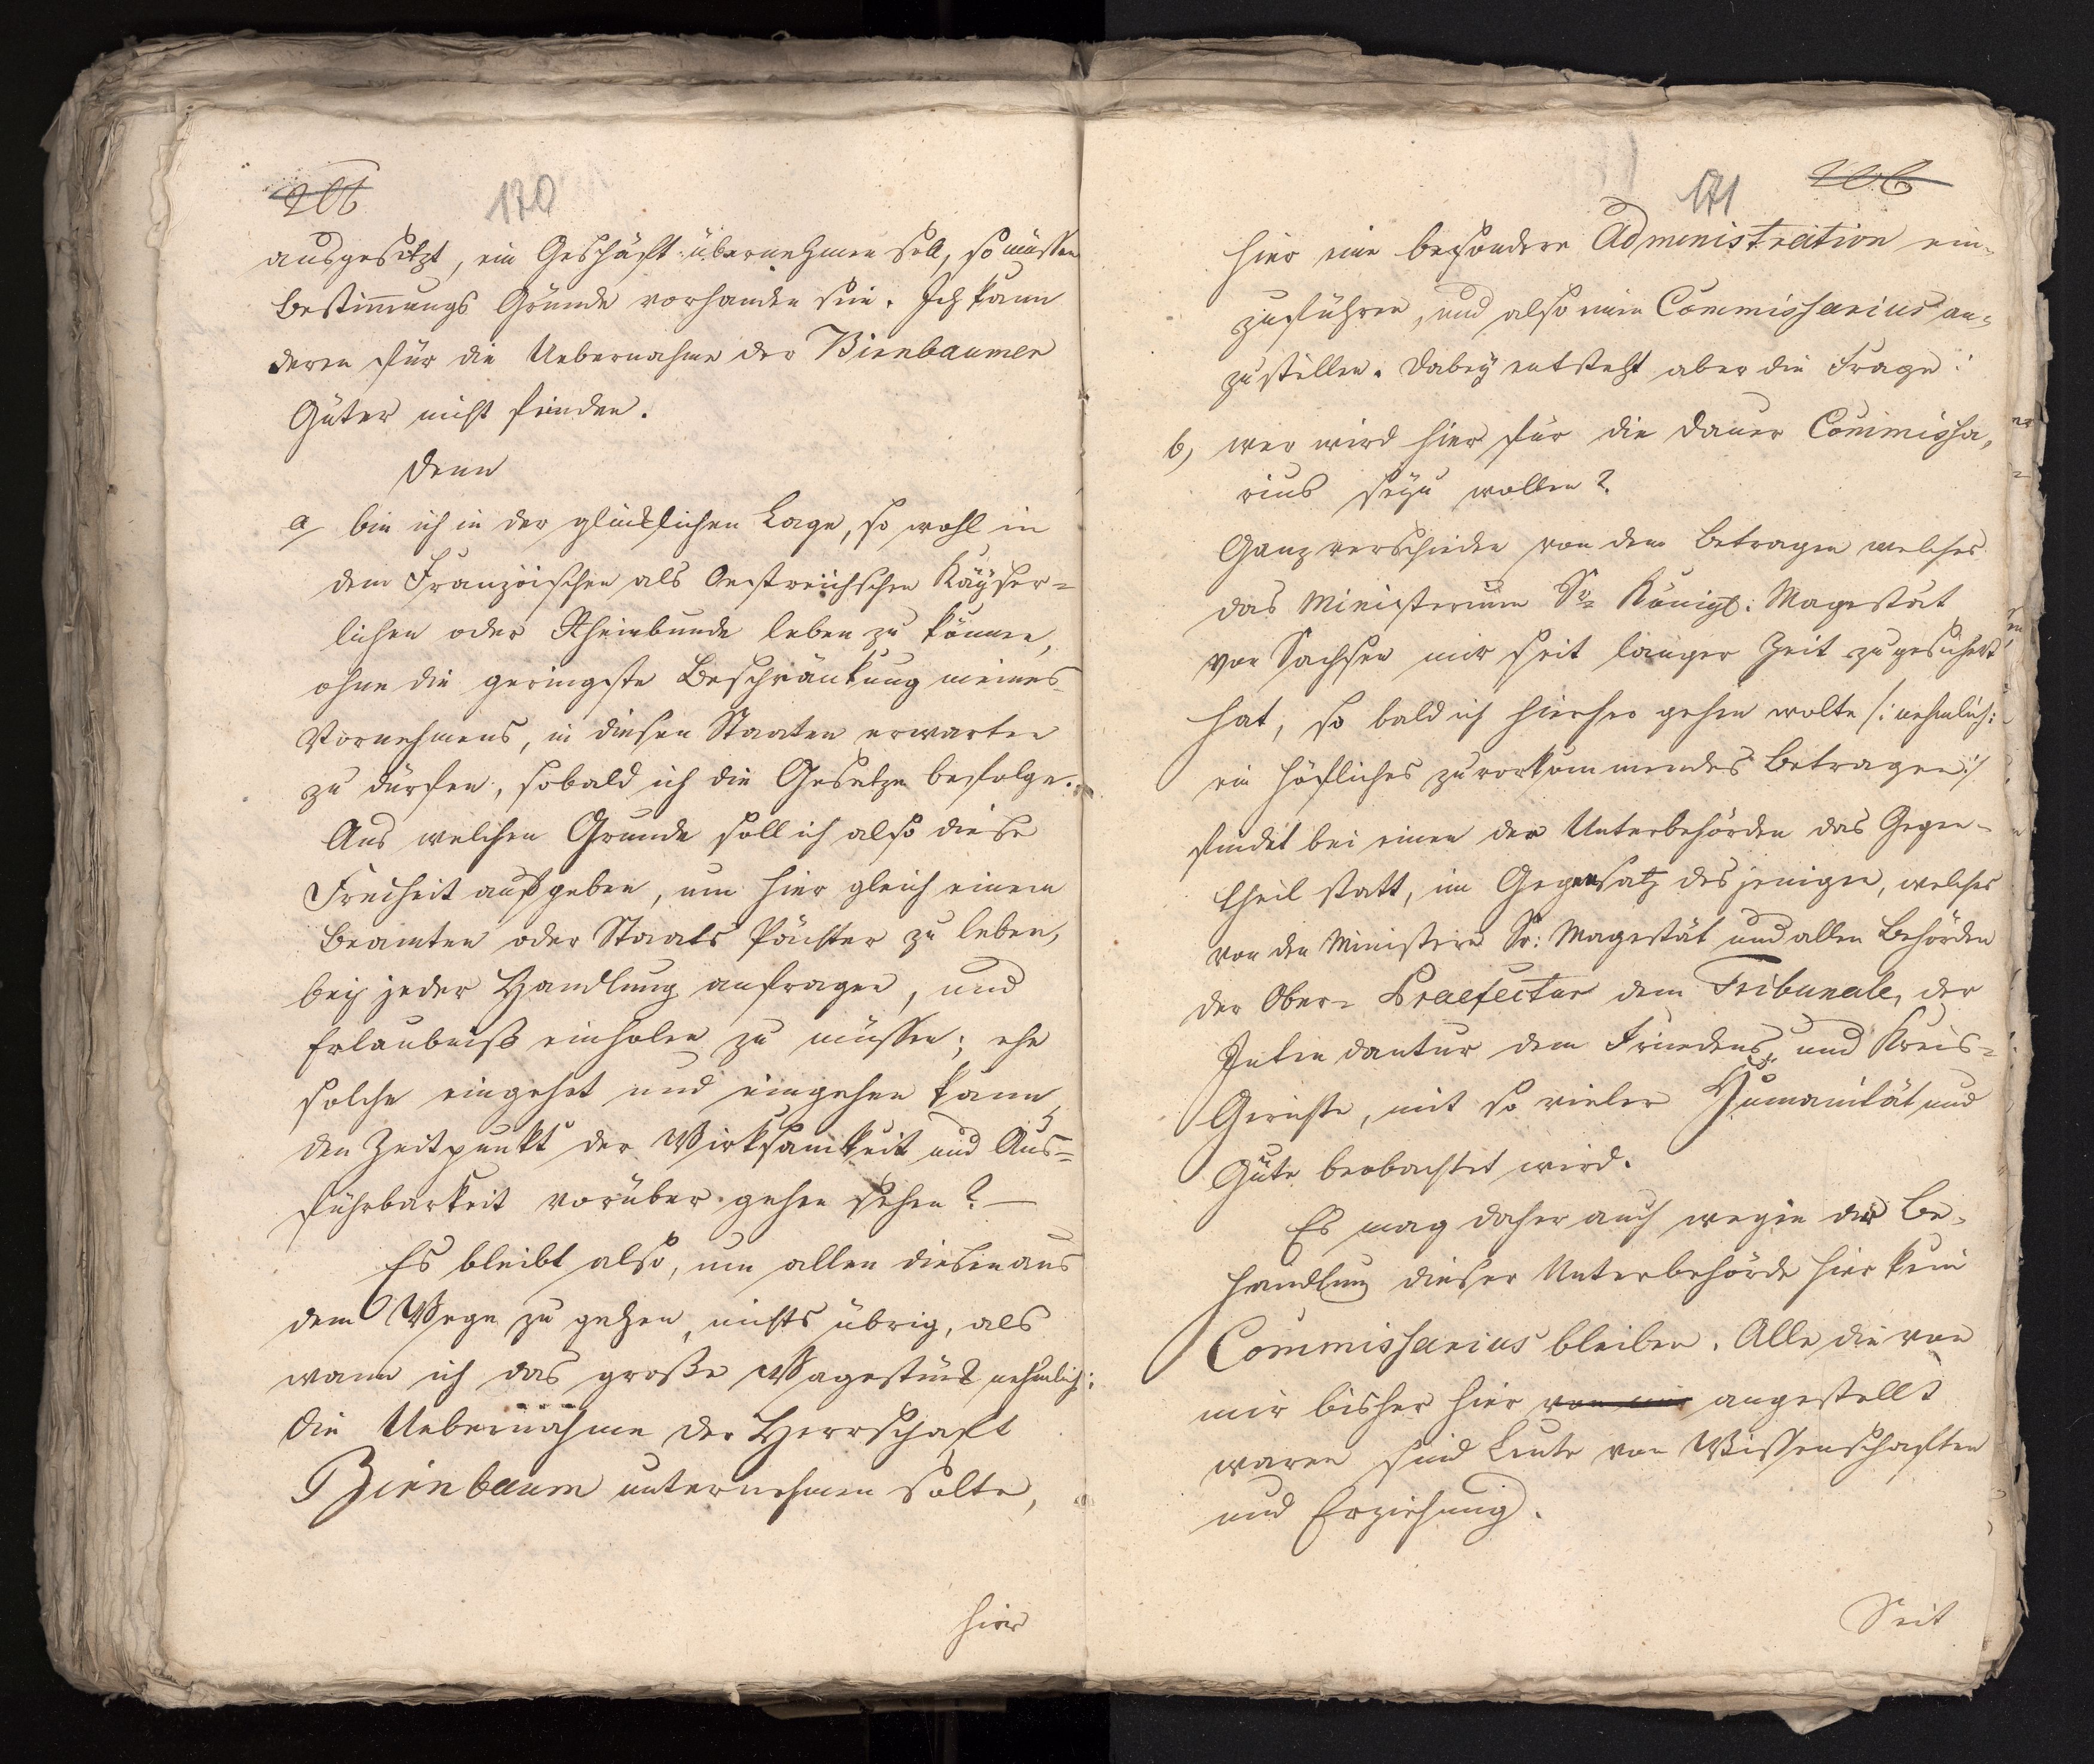 206
170
ausgesetzt, ein Geschäft übernehmen soll, so müssen
Bestim̅ungs Gründe vorhanden sein. Ich kann
deren für die Uebernahme der Bienbaumer
Güter nicht finden.
Denn
a/ bin ich in der glücklichen Lage, so wohl in
dem Französischen als Oestreichschen Kayser=
lichen oder Rheinbunde leben zu können,
ohne die geringste Beschränkung meines
Vornehmens, in diesen Staaten erwarten
zu dürfen, sobald ich die Gesetze befolge.
Aus welchen Grunde soll ich also diese
Freiheit aufgeben, um hier gleich einem
Beamten oder Staats Pächter zu leben,
bey jeder Handlung anfragen, und
Erlaubniß einholen zu müssen; ehe
solche eingehet und eingehen kann,
den Zeitpunkt der Wirksamkeit und Aus=
führbarkeit vorüber gehen sehen? —
Es bleibt also, um allen diesen aus
dem Wege zu gehen, nichts übrig, als
wann ich das große Wagestück nehmlich:
die Uebernahme der Herrschaft
Bienbaum unternehmen solte,
hier
171
206
hier eine besondere Administration ein=
zuführen, und also einen Commissarius an=
zustellen. Dabey entsteht aber die Frage:
b, wer wird hier für die Dauer Commissa=
rius seyn wollen?
Ganz verschieden von dem Betragen welches
das Ministerium Sr Königl: Magestät
von Sachsen mir seit langer Zeit zugesichert
hat, so bald ich hierher gehen wolte /: nehmlich:
ein höfliches zuvorkommendes Betragen :/
findet bei einen der Unterbehörden das Gegen=
theil statt, im Gegensatz desjenigen, welches
von den Ministern Sr: Magestät und allen Behörden
der Ober= Praefectur dem Tribunale, der
Intendantur dem Friedens= und Kreis=
Gerichte, mit so vieler Humanität und
Güte beobachtet wird.
Es mag daher auch wegen der Be=
handlung dieser Unterbehörde hier kein
Commissarius bleiben. Alle die von
mir bisher hier von mir angestellt
waren sind Leute von Wissenschaften
und Erziehung.
Seit